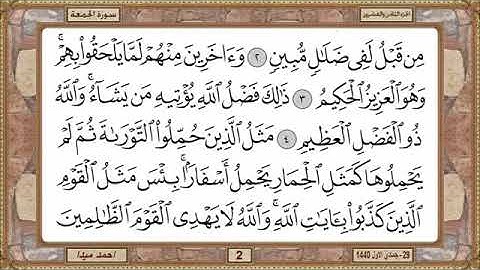 الجزء الثامن والعشرون
سورة الجمعة
مِن قَبْلُ لَفِى ضَلَٰلٍ مُّبِينٍ ٢ وَءَاخَرِينَ مِنْهُمْ لَمَّا يَلْحَقُوا۟ بِهِمْ ۚ
وَهُوَ ٱلْعَزِيزُ ٱلْحَكِيمُ ٣ ذَٰلِكَ فَضْلُ ٱللَّهِ يُؤْتِيهِ مَن يَشَآءُ ۚ وَٱللَّهُ
ذُو ٱلْفَضْلِ ٱلْعَظِيمِ ٤ مَثَلُ ٱلَّذِينَ حُمِّلُوا۟ ٱلتَّوْرَىٰةَ ثُمَّ لَمْ
يَحْمِلُوهَا كَمَثَلِ ٱلْحِمَارِ يَحْمِلُ أَسْفَارًۢا ۚ بِئْسَ مَثَلُ ٱلْقَوْمِ
ٱلَّذِينَ كَذَّبُوا۟ بِـَٔايَٰتِ ٱللَّهِ ۚ وَٱللَّهُ لَا يَهْدِى ٱلْقَوْمَ ٱلظَّٰلِمِينَ
29- جمادى الاول 1440
2
احمد ميدا